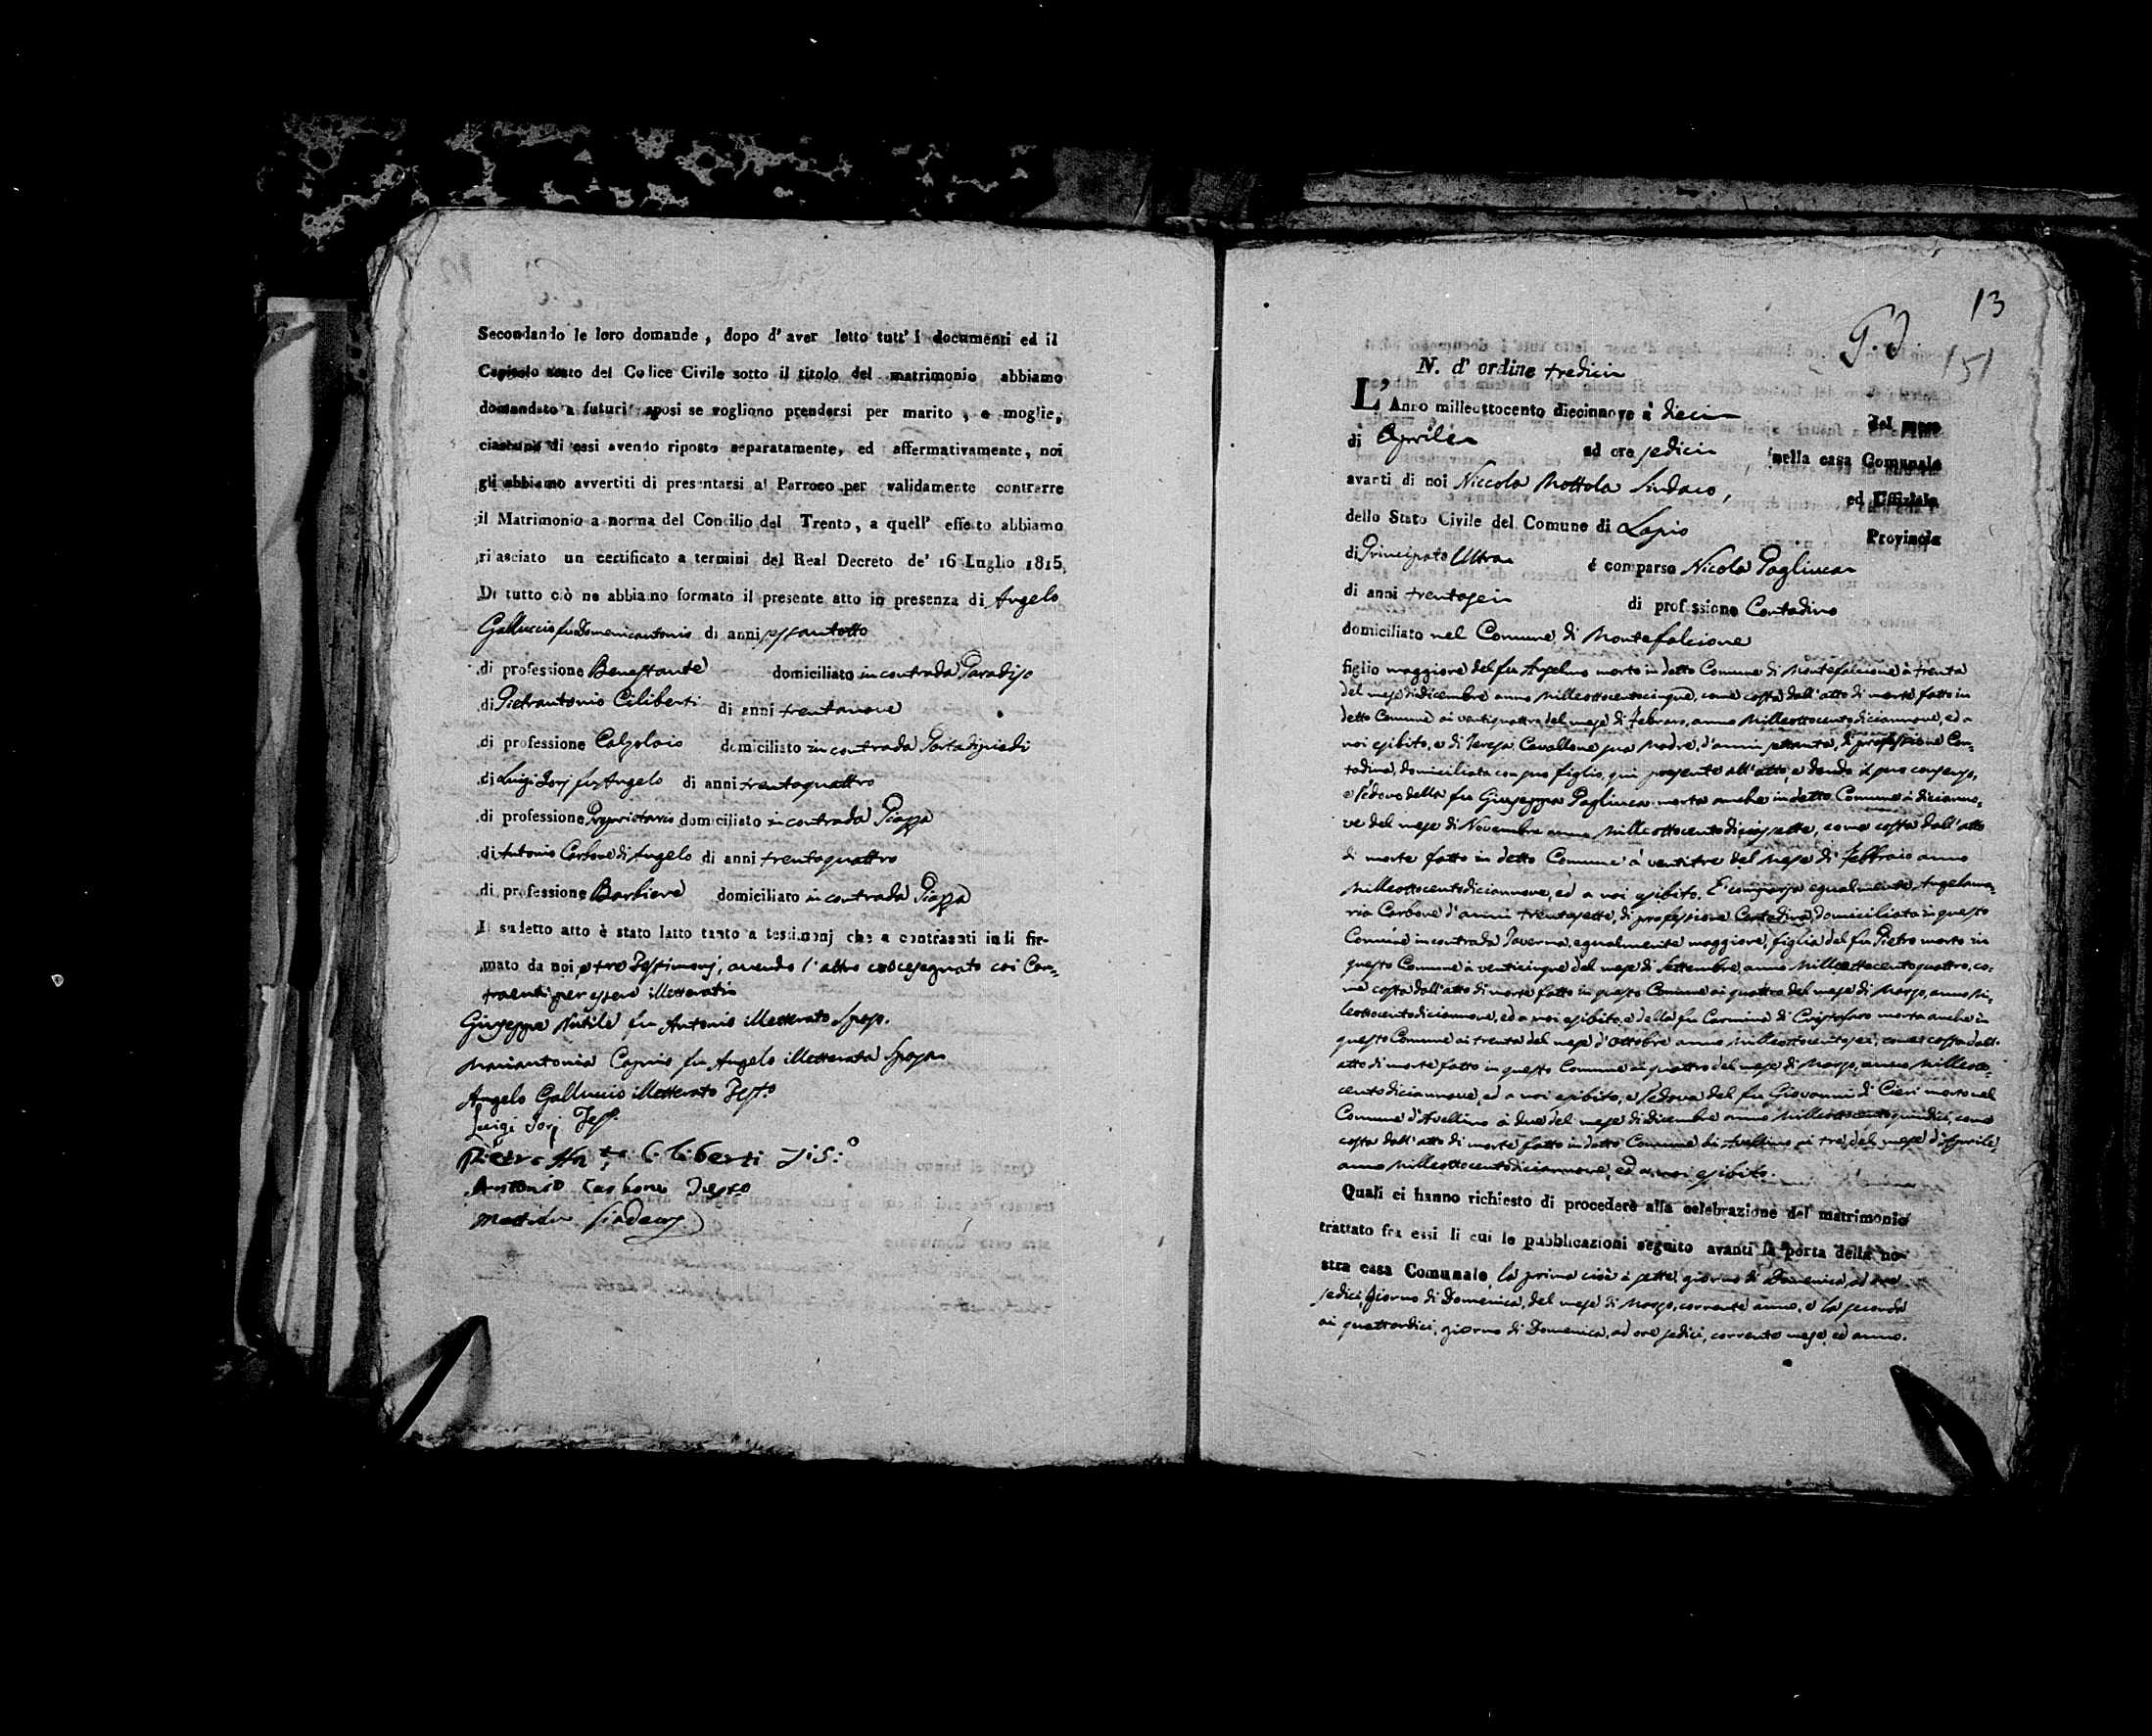 Secondando le loro domande, dopo d' aver letto tutt' i documenti ed il
Capitolo sesto del Codice Civile sotto il titolo del matrimonio abbiamo
domandato a futuri sposi se vogliono prendersi per marito, e moglie,
ciascuno di essi avendo riposto separatamente, ed affermativamente, noi
gli abbiamo avvertiti di presentarsi al Parroco per validamente contrarre
il Matrimonio a norma del Concilio del Trento, a quell' effetto abbiamo
rilasciato un certificato a termini del Real Decreto de' 16 Luglio 1815,
Di tutto ciò ne abbiamo formato il presente atto in presenza di Angelo
Galluccio fu Domenicantonio di anni sessantotto
di professione Benestante domiciliato in contrada Paradiso
di Pietrantonio Ciliberti di anni trentanove
di professione Calzolaio domiciliato in contrada Portadipiedi
di Luigi Iorj fu Angelo di anni trentaquattro
di professione Proprietario domiciliato in contrada Piazza
di Antonio Carbone di Angelo di anni trentaquattro
di professione Barbiere domiciliato in contrada Piazza
Il sudetto atto è stato latto tanto a testimonj che a contraenti indi fir-
mato da noi, e tre Testimonj, avendo l'altro crocesegnato coi Con-
traenti per essere illetterati
Giuseppe Nutile fu Antonio illetterato Sposo.
Mariantonia Caprio fu Angelo illetterata Sposa
Angelo Galluccio illetterato Testo
Luigi Iorj Tes.
Pietro Ant Ciliberti
Antonio Carbone Testo
Mottola Sindaco
13
151
N. d' ordine tredici
L'Anno milleottocento diecinnove à dieci del mese
di Aprile ad ore sedici nella casa Comunale
avanti di noi Niccola Mottola Sindaco, ed Uffiziale
dello Stato Civile del Comune di Lapio Provincia
di Principato Ultra è comparso Nicola Pagliuca
di anni trentasei di professione Contadino
domiciliato nel Comune di Montefalcione
figlio maggiore del fu Angelmo morto in detto Comune di Montefalcione à trenta
del mese di dicembre anno Milleottocentocinque, come costa dall'atto di morte fatto in
detto Comune ai ventiquattro del mese di Febraro, anno Milleottocentodiciannove, ed a
noi esibito, e di Teresa Cavallone sua Madre, d'anni settanta, di professione Con-
tadina, domiciliata con suo figlio, qui presente all'atto, e dando il suo consenso,
e Vedovo della fu Giuseppa Pagliuca morta anche in detto Comune à dicianno-
ve del mese di Novembre anno Milleottocentodiciassette, come costa dall'atto
di morte fatto in detto Comune à ventitre del Mese di Febbraio anno
Milleottocentodiciannove, ed a noi esibito. E' comparsa egualmente Angelama-
ria Carbone d'anni trentasette, di professione Contadina, domiciliata in questo
Comune in contrada Taverna, egualmente maggiore, figlia del fu Pietro morto in
questo Comune à venticinque del mese di Settembre, anno Milleottocentoquattro, co-
me costa dall'atto di morte fatto in questo Comune ai quattro del mese di Marzo, anno Mil-
leottocentodiciannove, ed a noi esibito, e della fu Carmina di Cristofaro morta anche in
questo Comune ai trenta del mese d'ottobre anno Milleottocentosei, come costa dall'
atto di morte fatto in questo Comune ai quattro del mese di Marzo, anno Milleotto-
centodiciannove, ed a noi esibito, e Vedova del fu Giovanni di Cieri morto nel
Comune d'Avellino à due del mese di dicembre anno Milleottocentoquindici, come
costa dall'atto di morte fatto in detto Comune di Avellino ai tre del mese d'Aprile,
anno Milleottocentodiciannove, ed a noi esibito.
Quali ci hanno richiesto di procedere alla celebrazione del matrimonio
trattato fra essi li cui le pubblicazioni seguito avanti la porta della no-
stra casa Comunale, la prima cioè à sette, giorno di Domenica, ad ore
sedici, giorno di Domenica, del mese di Marzo, corrente anno, e la seconda
ai quattordici, giorno di Domenica, ad ore sedici, corrente mese, ed anno.